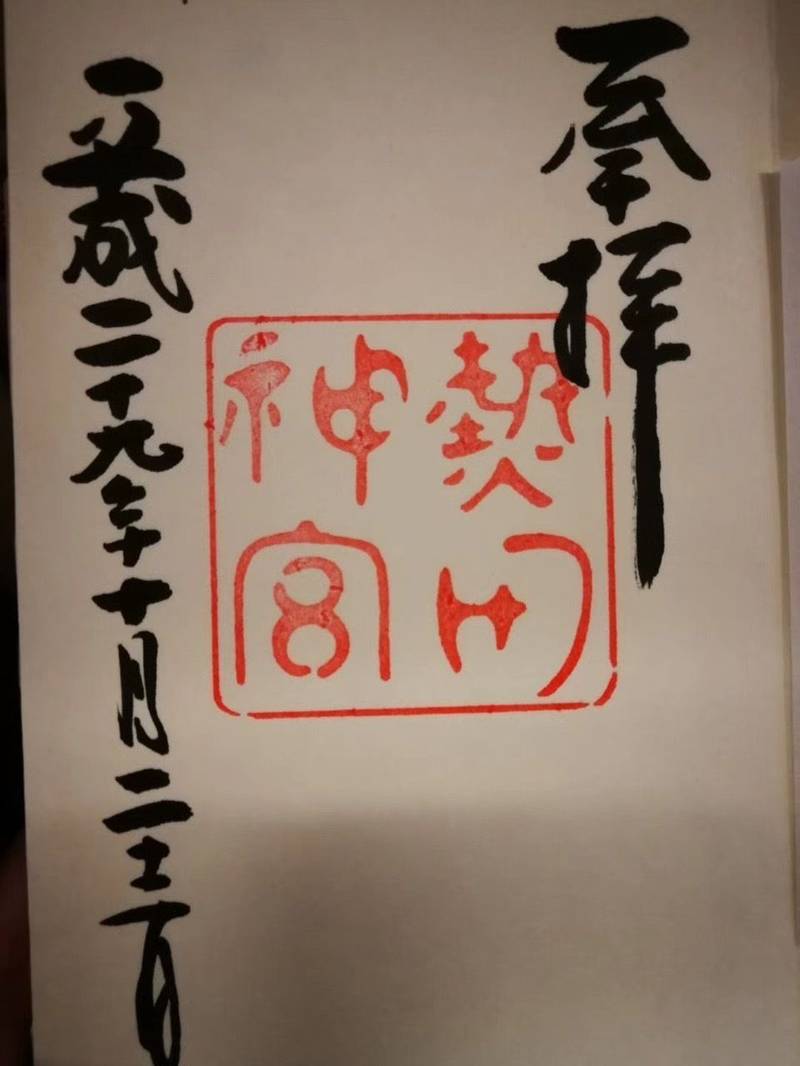 奉拝
熱田
神宮
平成二十九年十月二十二日